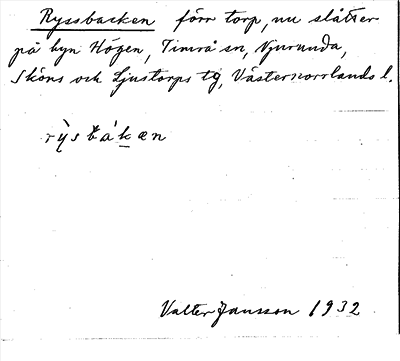 Ryssbacken förr torp, nu slåtter
på byn Högen, Timrå sn, Njurunda,
Sköns och Ljustorps tg, Västernorrlands l.
rỳsbákæn
Valter Jansson 1932